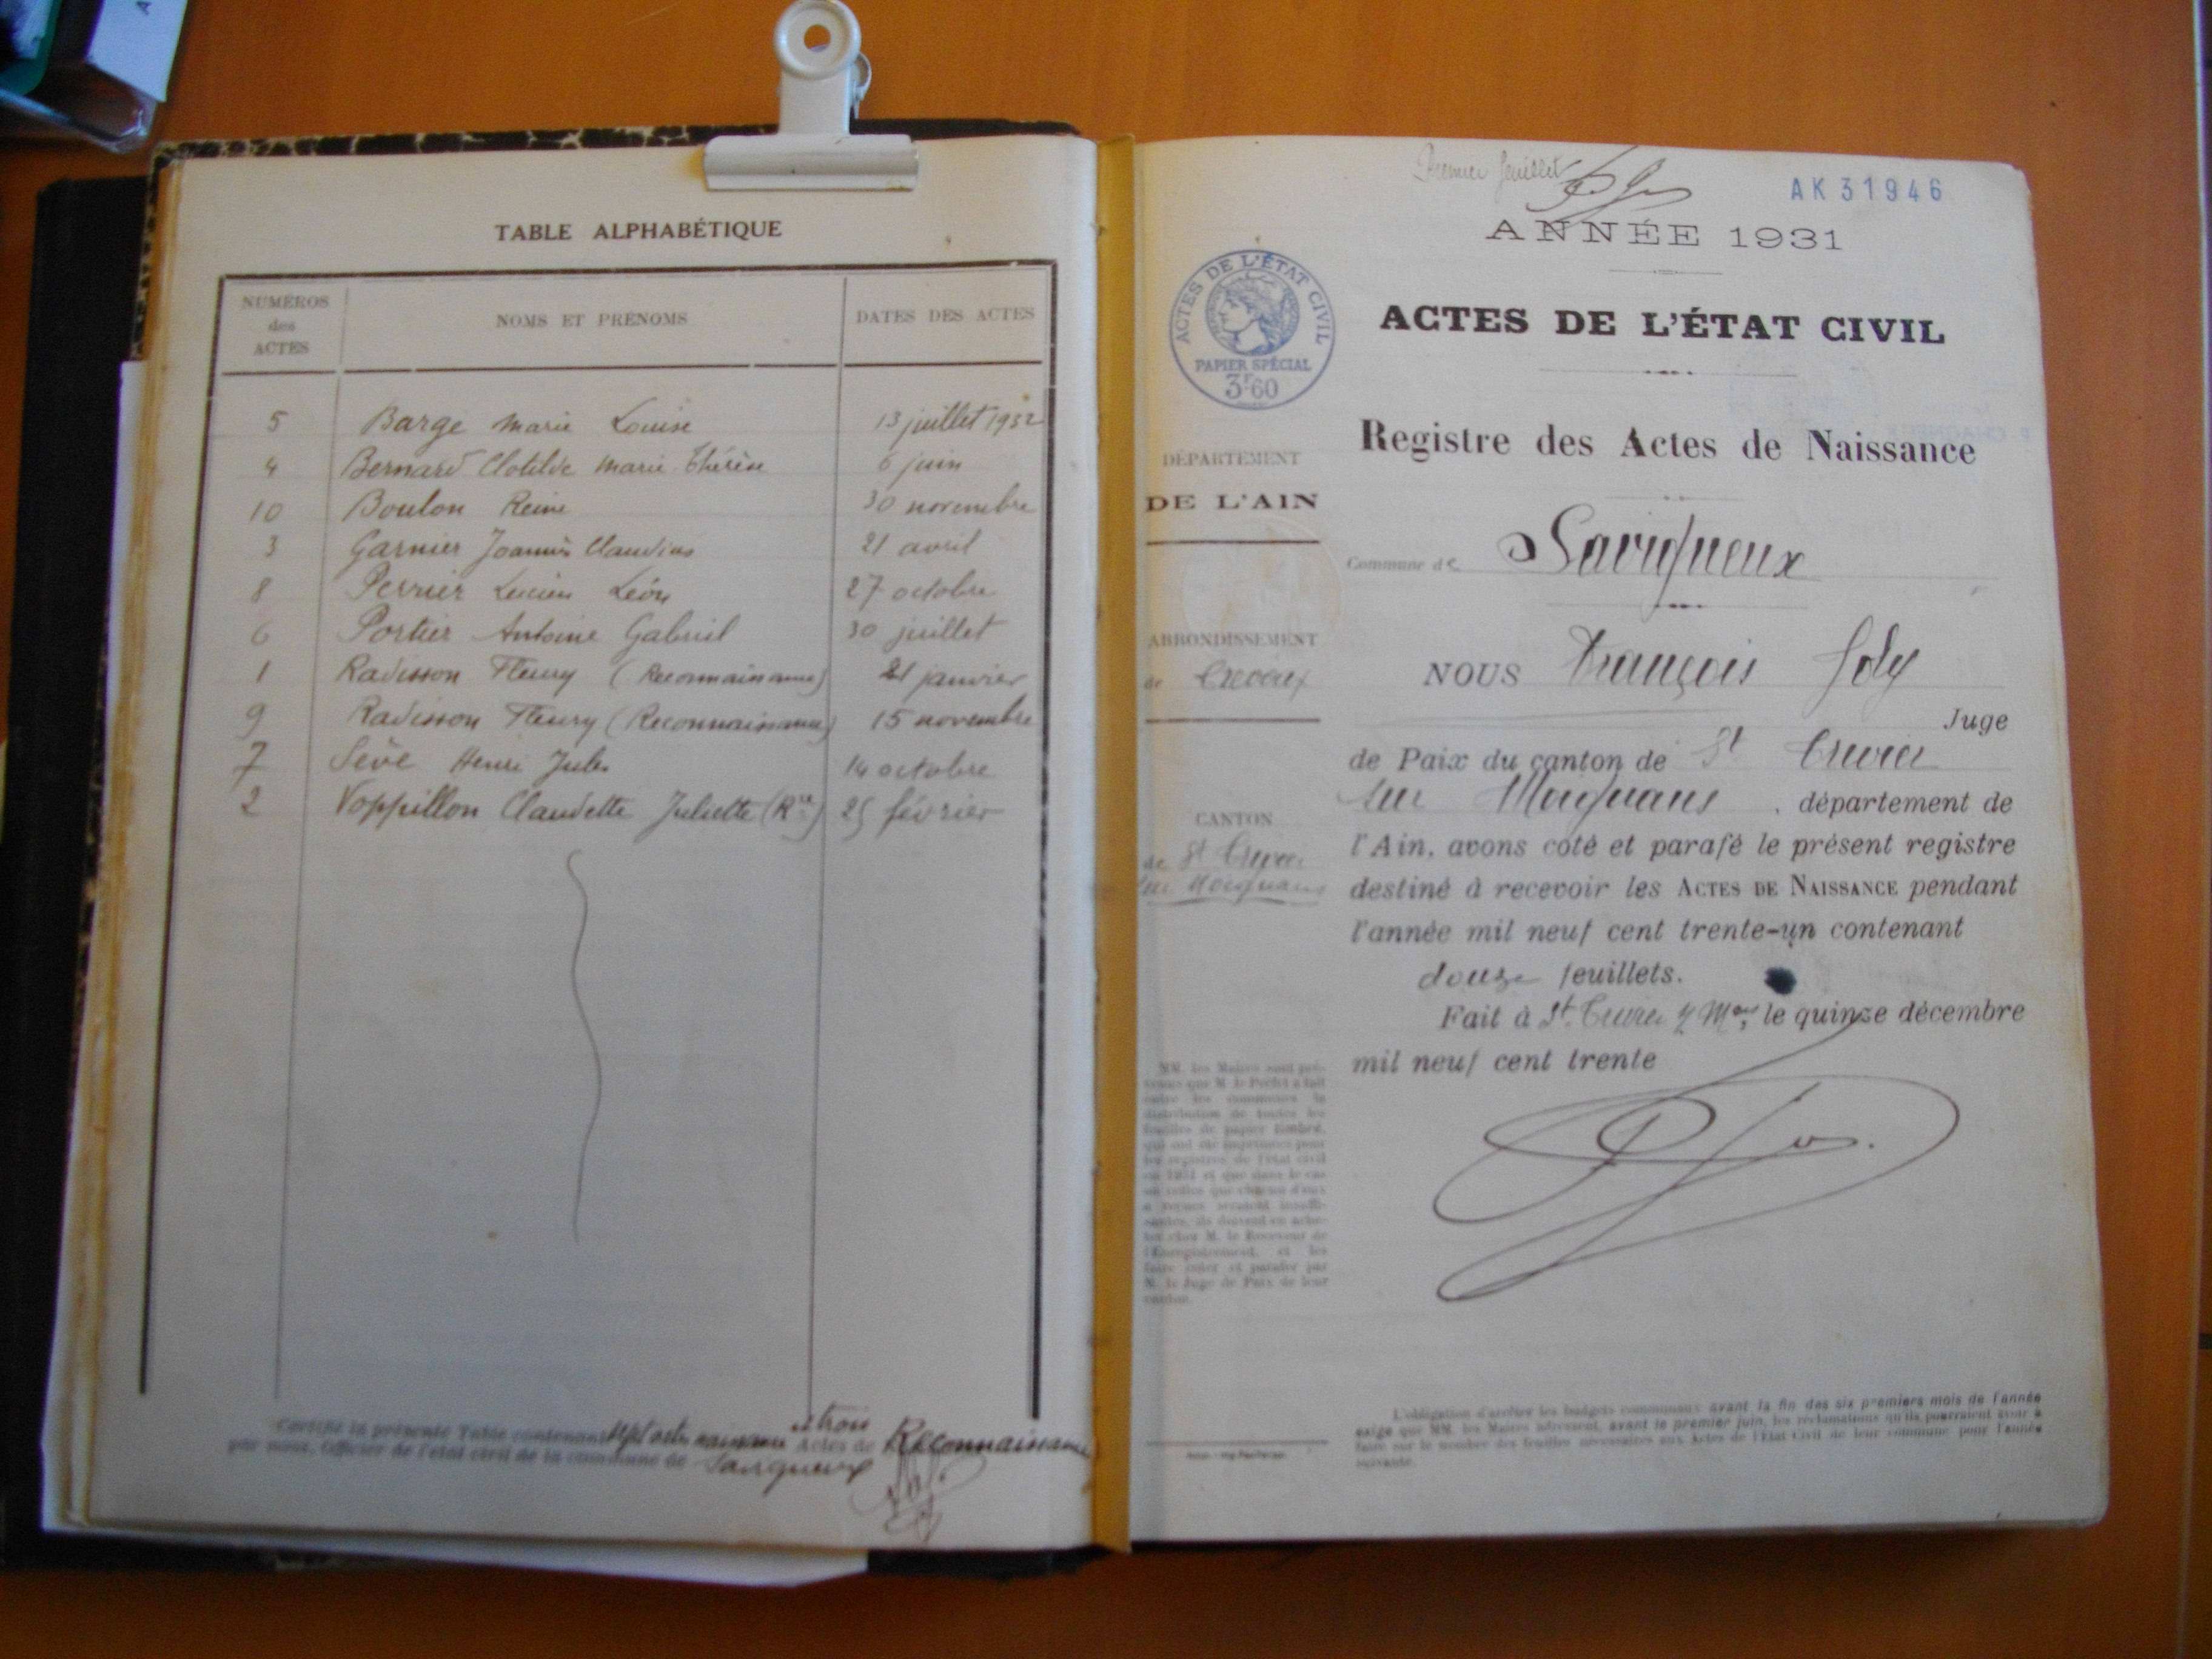 TABLE ALPHABÉTIQUE
NUMÉROS
des
ACTES
NOMS ET PRÉNOMS
DATES DES ACTES
5 Barge Marie Louise 13 juillet 1932
4 Bernard Clotilde Marie Thérèse 6 juin
10 Boulon Reine 30 novembre
3 Garnier Joannès Claudius 21 avril
8 Perrier Lucien Léon 27 octobre
6 Portier Antoine Gabriel 30 juillet
1 Radisson Fleury (Reconnaissance) 21 janvier
9 Radisson Fleury (Reconnaissance) 15 novembre
7 Sève Henri Jules 14 octobre
2 Voppillon Claudette Juliette (Rce) 25 février
et trois
Certifié la présente Table contenant sept actes naissance Actes de Reconnaissance
par nous, Officier de l'état civil de la commune de Savigneux
Premier feuillet
AK 31946
ANNÉE 1931
ACTES DE L'ÉTAT CIVIL
PAPIER SPÉCIAL
3F60
ACTES DE L'ÉTAT CIVIL
Registre des Actes de Naissance
DÉPARTEMENT
DE L'AIN
Commune de Savigneux
ARRONDISSEMENT
de Trévoux
NOUS François Joly
Juge
de Paix du canton de St Trivier
sur Moignans, département de
CANTON
de St Trivier
sur Moignans
l'Ain, avons coté et parafé le présent registre
destiné à recevoir les ACTES DE NAISSANCE pendant
l'année mil neuf cent trente-un contenant
douze feuillets.
Fait à St. Trivier s/ Mans, le quinze décembre
mil neuf cent trente
MM. les Maires sont pré-
venus que M. le Préfet a fait
entre les communes la
distribution de toutes les
feuilles de papier timbré,
qui ont été imprimées pour
les registres de l'état civil
en 1931 et que dans le cas
où celles que chacun d'eux
a reçues seraient insuffi-
santes, ils doivent en ache-
ter chez M. le Receveur de
l'Enregistrement, et les
faire coter et parafer par
M. le Juge de Paix de leur
canton.
L'obligation d'arrêter les budgets communaux avant la fin des six premiers mois de l'année
exige que MM. les Maires adressent, avant le premier juin, les réclamations qu'ils pourraient avoir à
faire sur le nombre des feuilles nécessaires aux Actes de l'État Civil de leur commune pour l'année
suivante.